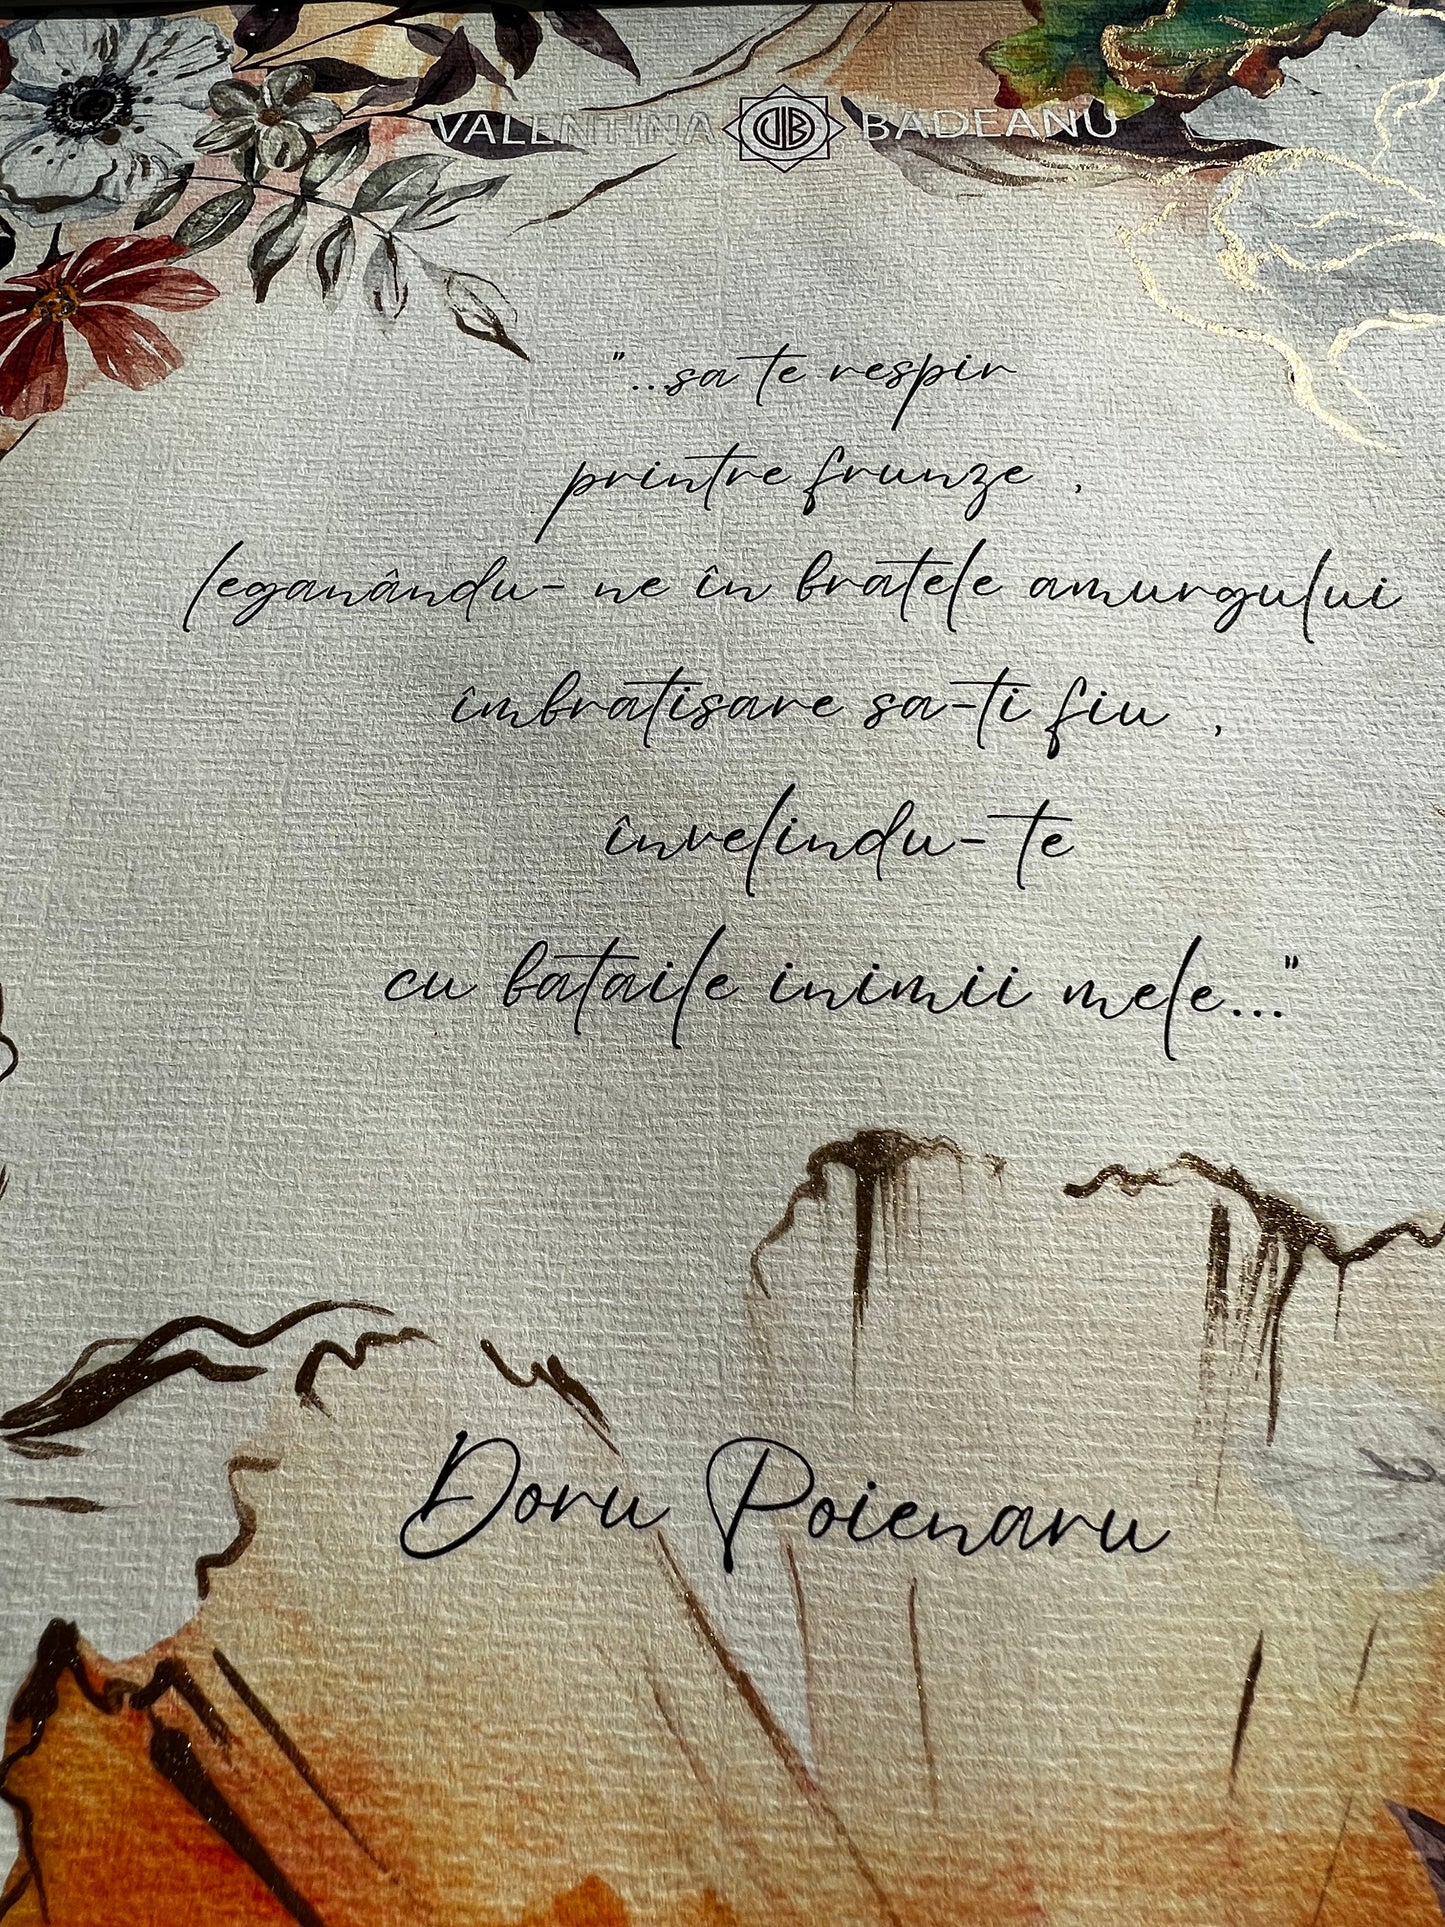 VALENTINA VB BADEANU
"...sa te respir
printre frunze ,
leganându- ne în bratele amurgului
îmbratisare sa-ti fiu ,
învelindu- te
cu bataile inimii mele..."
Doru Poienaru